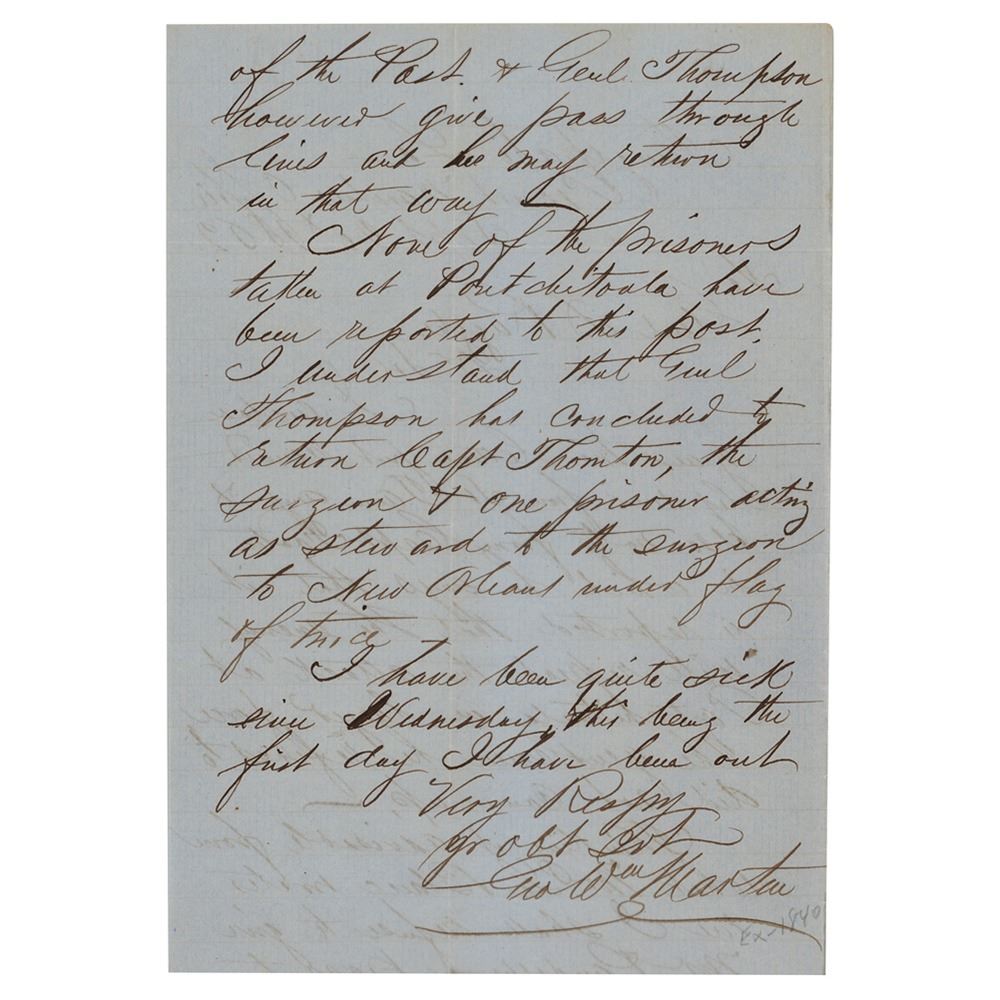 of the Post. & Genl. Thompson
however give pass through
lines and he may return
in that way
None of the prisoners
taken at Pontchitoula have
been reported to this post.
I understand that Genl
Thompson has concluded to
return Capt Thornton, the
surgeon & one prisoner acting
as steward to the surgeon
to New Orleans under flag
of truce
I have been quite sick
since Wednesday, this being the
first day I have been out
Very Respy
yr obt Svt
Wm Martin
Ex-1840